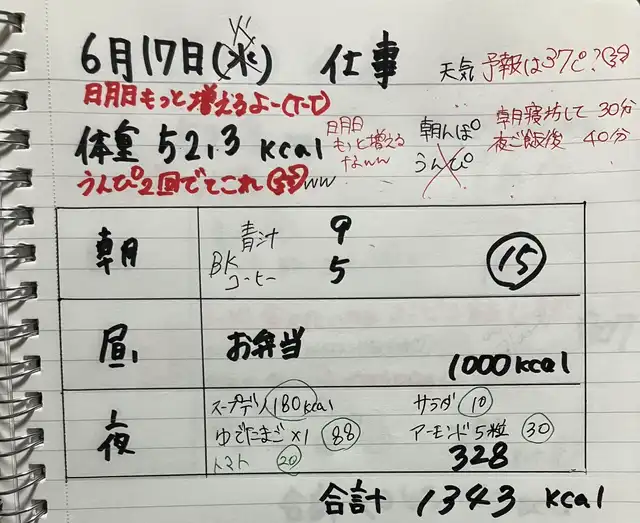 6月17日(水)火 仕事 天気 予報は37℃?
日月日もっと増えるよー(T-T)
体重 52,3 kcal 日月日もっと増えるなww 朝んぽ 朝寝坊して30分
うんぴ 夜ご飯後 40分
うんぴ2回でてこれww
朝 青汁 9
BKコーヒー 5 15
昼 お弁当 1000kcal
夜 スープデリ 180kcal サラダ 10
ゆでたまご×1 88 アーモンド5粒 30
トマト 20 328
合計 1343 kcal